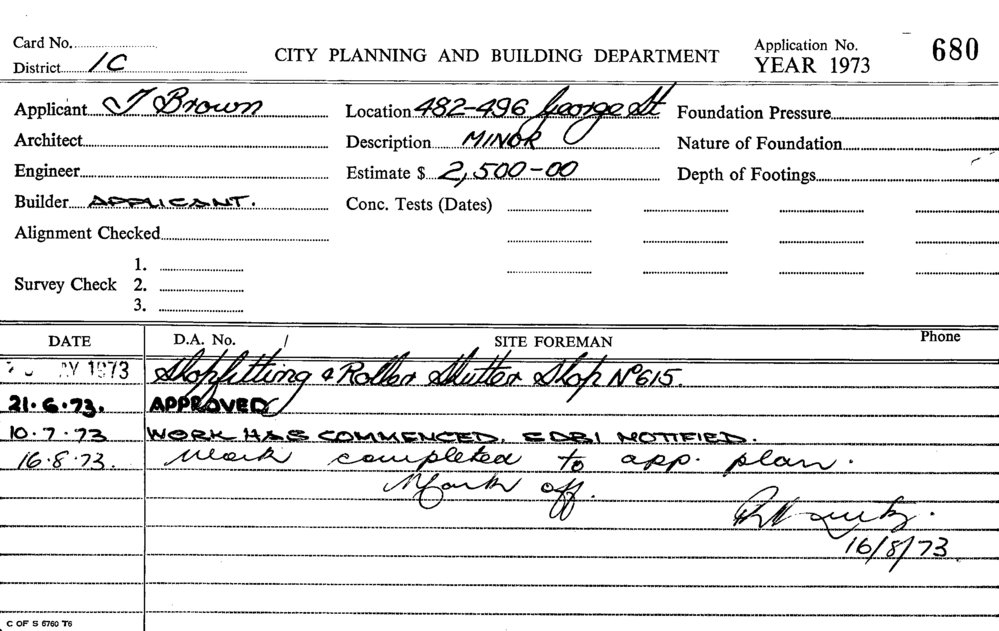 Card No.
District 1C
CITY PLANNING AND BUILDING DEPARTMENT
Application No. 680
YEAR 1973
Applicant T Brown
Location 482-496 George St
Foundation Pressure
Architect
Description MINOR
Nature of Foundation
Engineer
Estimate $ 2,500-00
Depth of Footings
Builder APPLICANT.
Conc. Tests (Dates)
Alignment Checked
Survey Check
1.
2.
3.
DATE D.A. No. / SITE FOREMAN Phone
AY 1973 Shopfitting & Roller Shutter Shop No 615.
21.6.73. APPROVED
10.7.73 WORK HAS COMMENCED. EDBI NOTIFIED.
16.8.73. Work completed to app. plan.
Mark off.
16/8/73.
C OF S 5760 T6